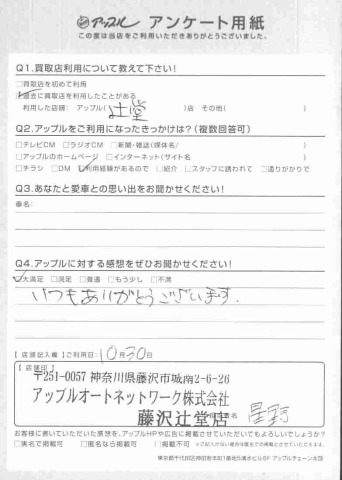 アップル アンケート用紙
この度は当店をご利用いただきありがとうございました。
Q1.買取店利用について教えて下さい！
□買取店を初めて利用
☑過去に買取店を利用したことがある
利用した店舗： アップル( 辻堂 )店 その他( )
Q2.アップルをご利用になったきっかけは？(複数回答可)
□テレビCM □ラジオCM □新聞・雑誌(媒体名/ )
□アップルのホームページ □インターネット(サイト名 )
□チラシ □DM ☑利用経験があるので □紹介 □スタッフに誘われて □通りがかりで
Q3.あなたと愛車との思い出をお聞かせください！
車名：
Q4.アップルに対する感想をぜひお聞かせください！
☑大満足 □満足 □普通 □もう少し □不満
いつもありがとうございます.
【店舗記入欄】ご利用日：10月30日
【店舗印】
〒251-0057 神奈川県藤沢市城南2-6-26
アップルオートネットワーク株式会社
藤沢辻堂店
星野
お客様に書いていただいた感想を、アップルHPや広告に掲載させていただいてもよろしいでしょうか？
□実名で掲載可 □匿名なら掲載可 □掲載不可